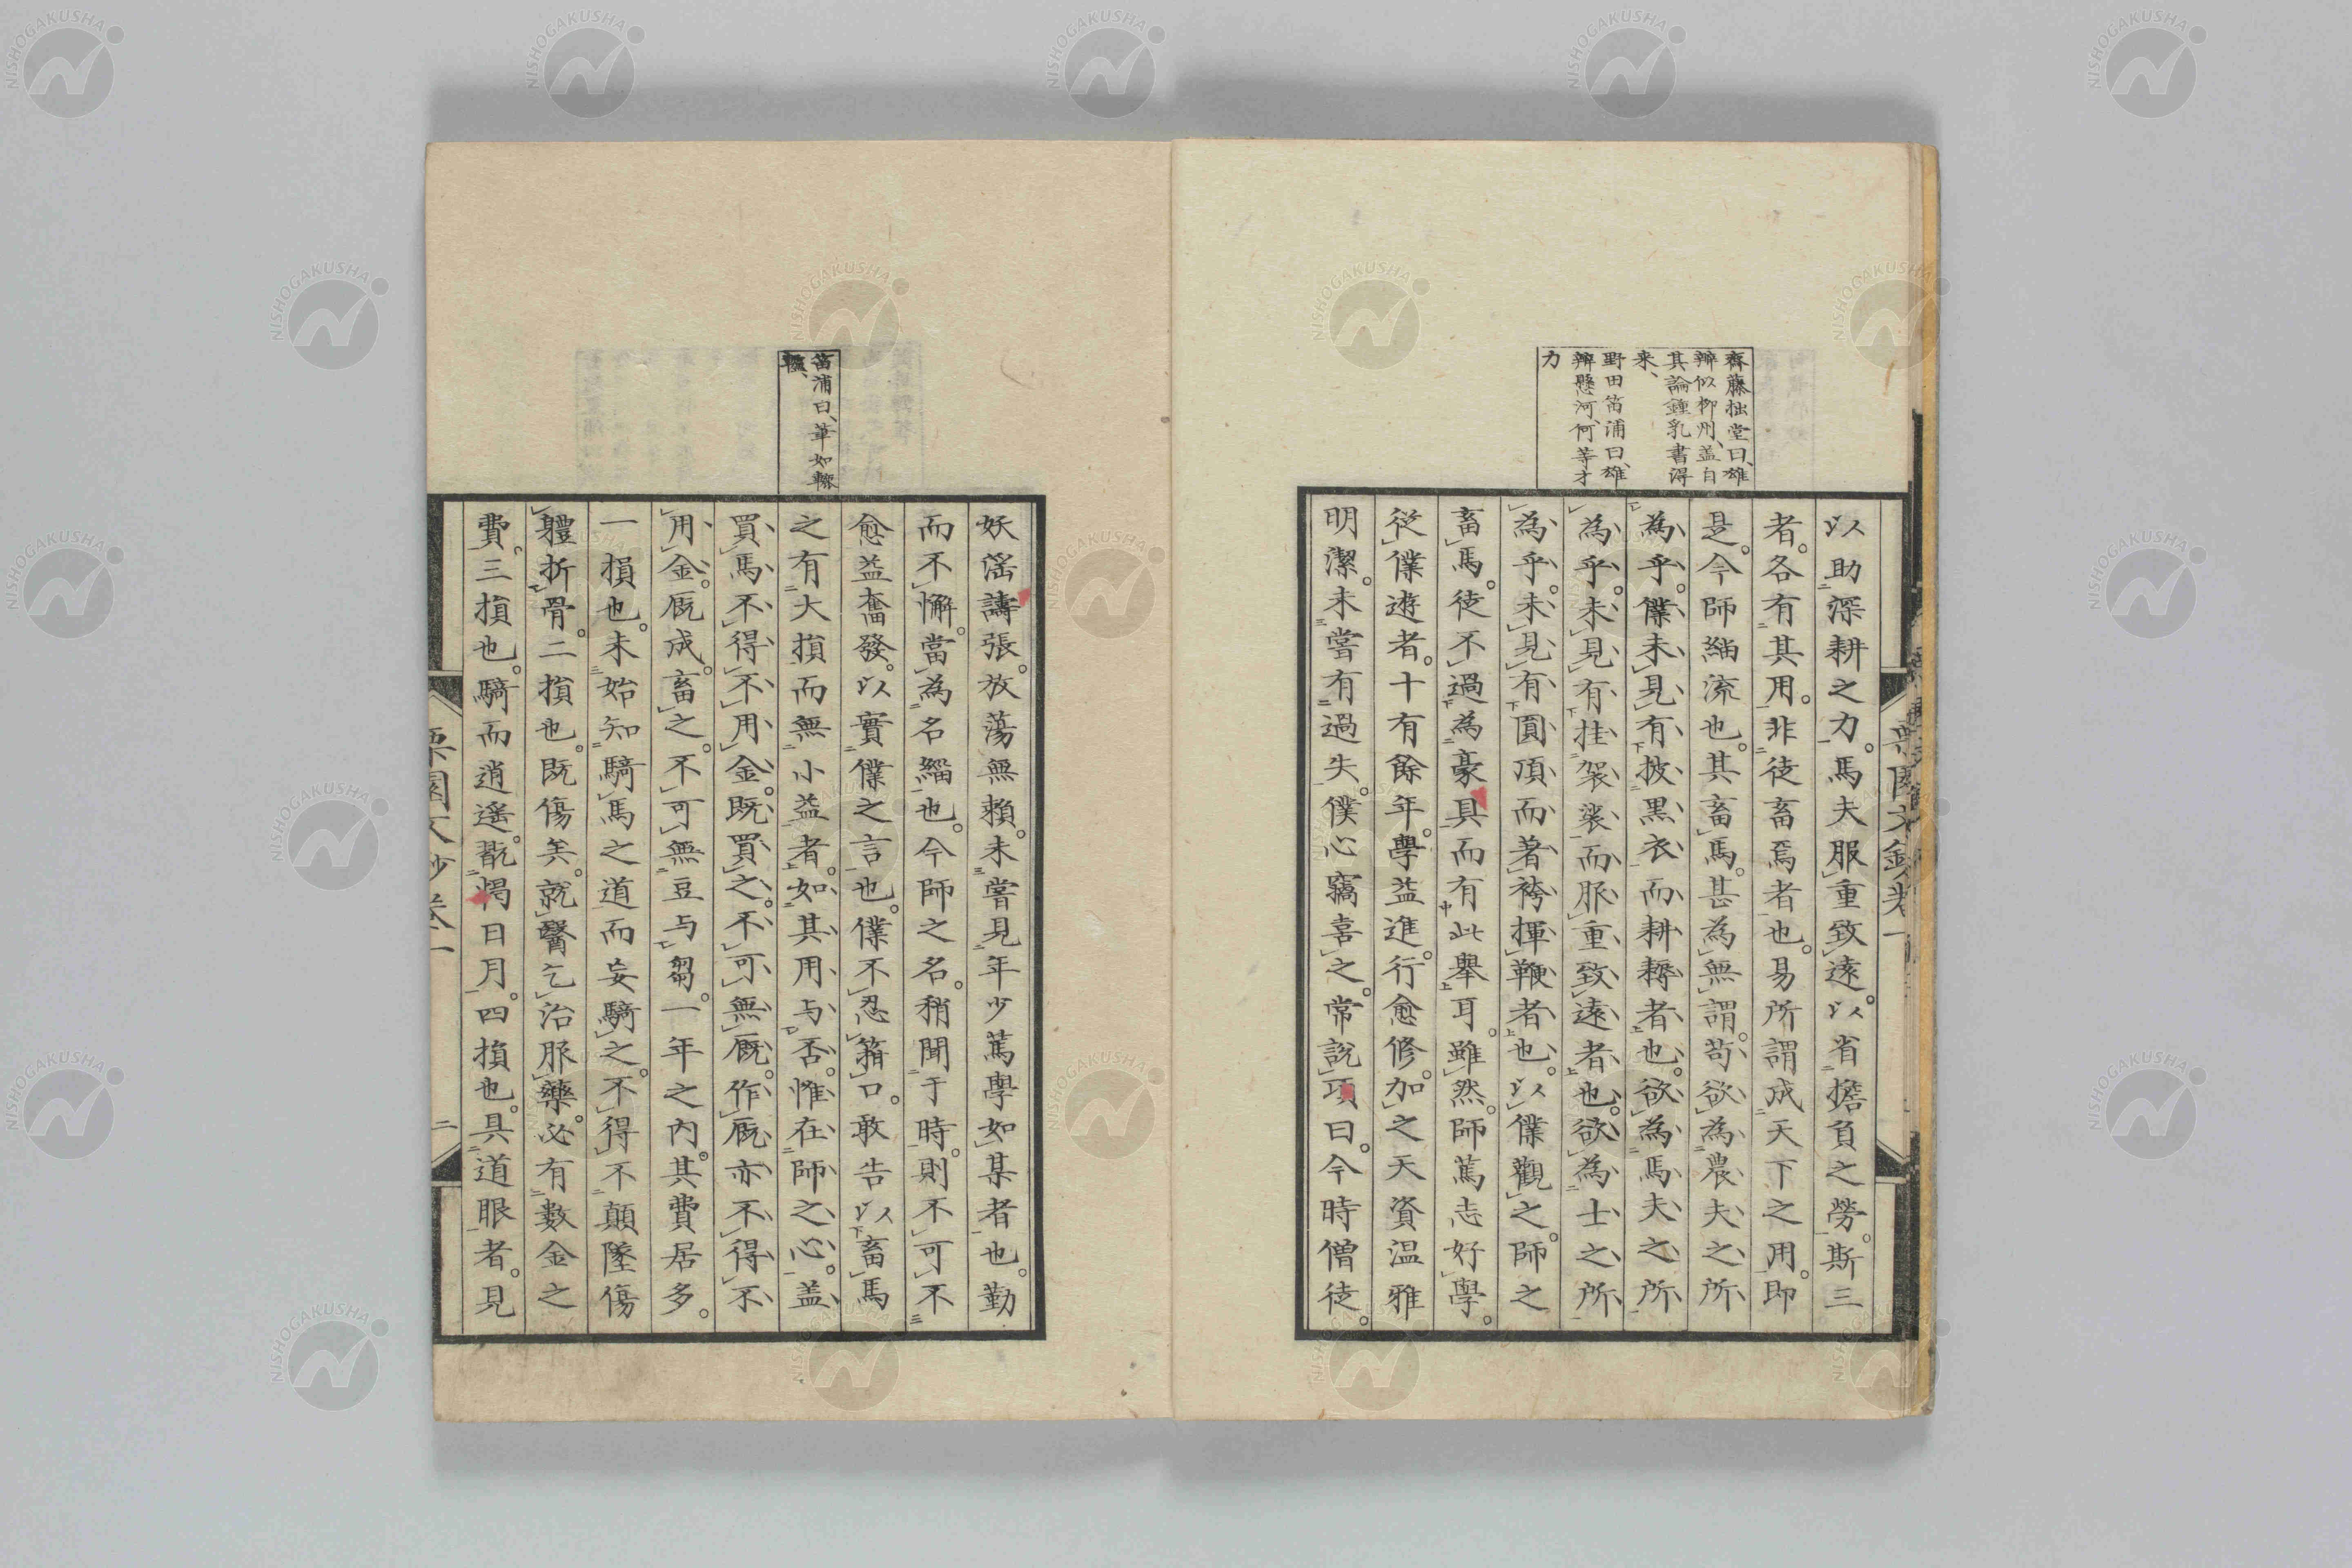 齊藤拙堂曰、雄
辨似柳州、盖自
其論鍾乳書得
来、
野田笛浦曰、雄
辨懸河、何等才
力
以助深耕之力。馬夫服重致遠。以省擔負之勞。斯三
者。各有其用。非徒畜焉者也。易所謂成天下之用。即
是。今師緇流也。其畜馬。甚為無謂。苟欲為農夫之所
為乎。僕未見有披黒衣而耕耨者也。欲為馬夫之所
為乎。未見有挂袈裟而服重致遠者也。欲為士之所
為乎。未見有圓頂而著袴揮鞭者也。以僕觀之。師之
畜馬。徒不過為豪具而有此舉耳。雖然。師篤志好學。
從僕遊者。十有餘年。學益進。行愈修。加之天資温雅
明潔。未嘗有過失。僕心竊喜之。常說項曰。今時僧徒。
笛浦曰、筆如轆
轤、
妖滛譸張。放蕩無賴。未嘗見年少篤學如某者也。勤
而不懈。當為名緇也。今師之名。稍聞于時。則不可不
愈益奮發。以實僕之言也。僕不忍箝口。敢告以畜馬
之有大損而無小益者。如其用与否。惟在師之心。盖
買馬不得不用金。既買之。不可無厩。作厩亦不得不
用金。厩成畜之。不可無豆与芻。一年之内。其費居多。
一損也。未始知騎馬之道而妄騎之。不得不顛墜傷
體折骨。二損也。既傷矣。就醫乞治服藥。必有數金之
費。三損也。騎而逍遥。翫愒日月。四損也。具道眼者。見
栗園文鈔卷一
二
NISHOGAKUSHA